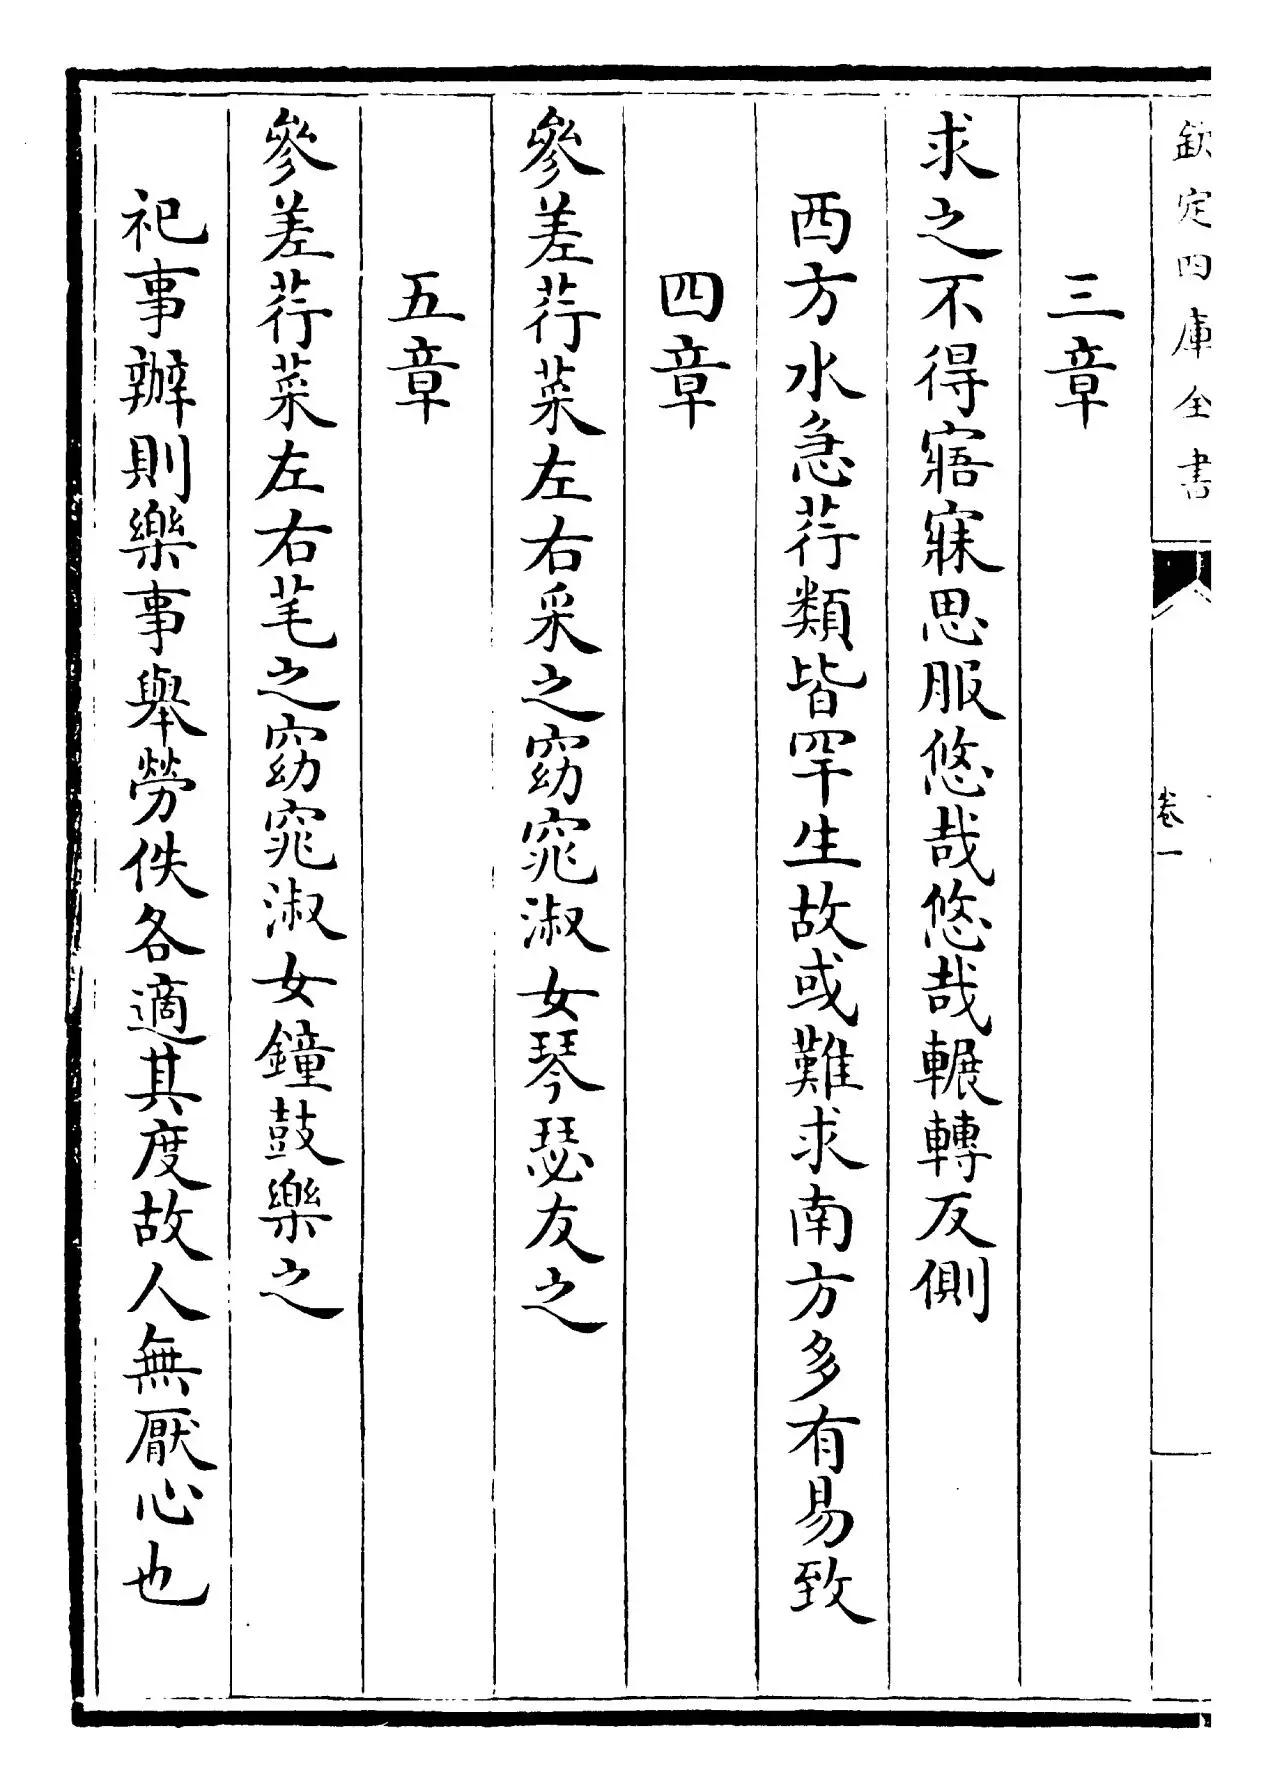 欽定四庫全書
卷一
三章
求之不得寤寐思服悠哉悠哉輾轉反側
西方水急荇類皆罕生故或難求南方多有易致
四章
參差荇菜左右采之窈窕淑女琴瑟友之
五章
參差荇菜左右芼之窈窕淑女鐘鼓樂之
祀事辦則樂事舉勞佚各適其度故人無厭心也